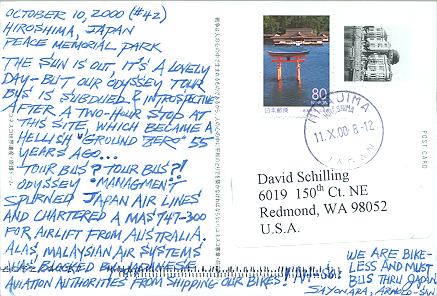 OCTOBER 10, 2000 (#42)
HIROSHIMA, JAPAN
PEACE MEMORIAL PARK
THE SUN IS OUT IT'S A LOVELY
DAY-BUT OUR ODYSSEY TOUR
BUS IS SUBDUED & INTROSPECTIVE
AFTER A TWO-HOUR STOP AT
THIS SITE WHICH BECAME A
HELLISH "GROUND ZERO" 55
YEARS AGO...
TOUR BUS? TOUR BUS?!
ODYSSEY MANAGMENT
SPURNED JAPAN AIR LINES
AND CHARTERED A MAS 747-300
FOR AIRLIFT FROM AUSTRALIA.
ALAS, MALAYSIAN AIR SYSTEMS
WAS BLOCKED BY JAPANESE
AVIATION AUTHORITIES FROM SHIPPING OUR BIKES!
WE ARE BIKE-
LESS AND MUST
BUS THRU JAPAN
SAYONARA,
80
日本郵便
MIYAJIMA
HIROSHIMA
11.X.00.8-12
JAPAN
POST CARD
David Schilling
6019 150th Ct. NE
Redmond, WA 98052
U.S.A.